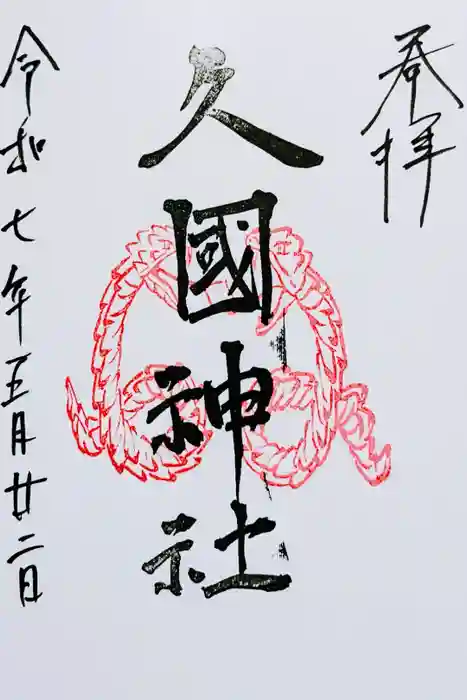 奉拝
久國神社
令和七年五月廿二日